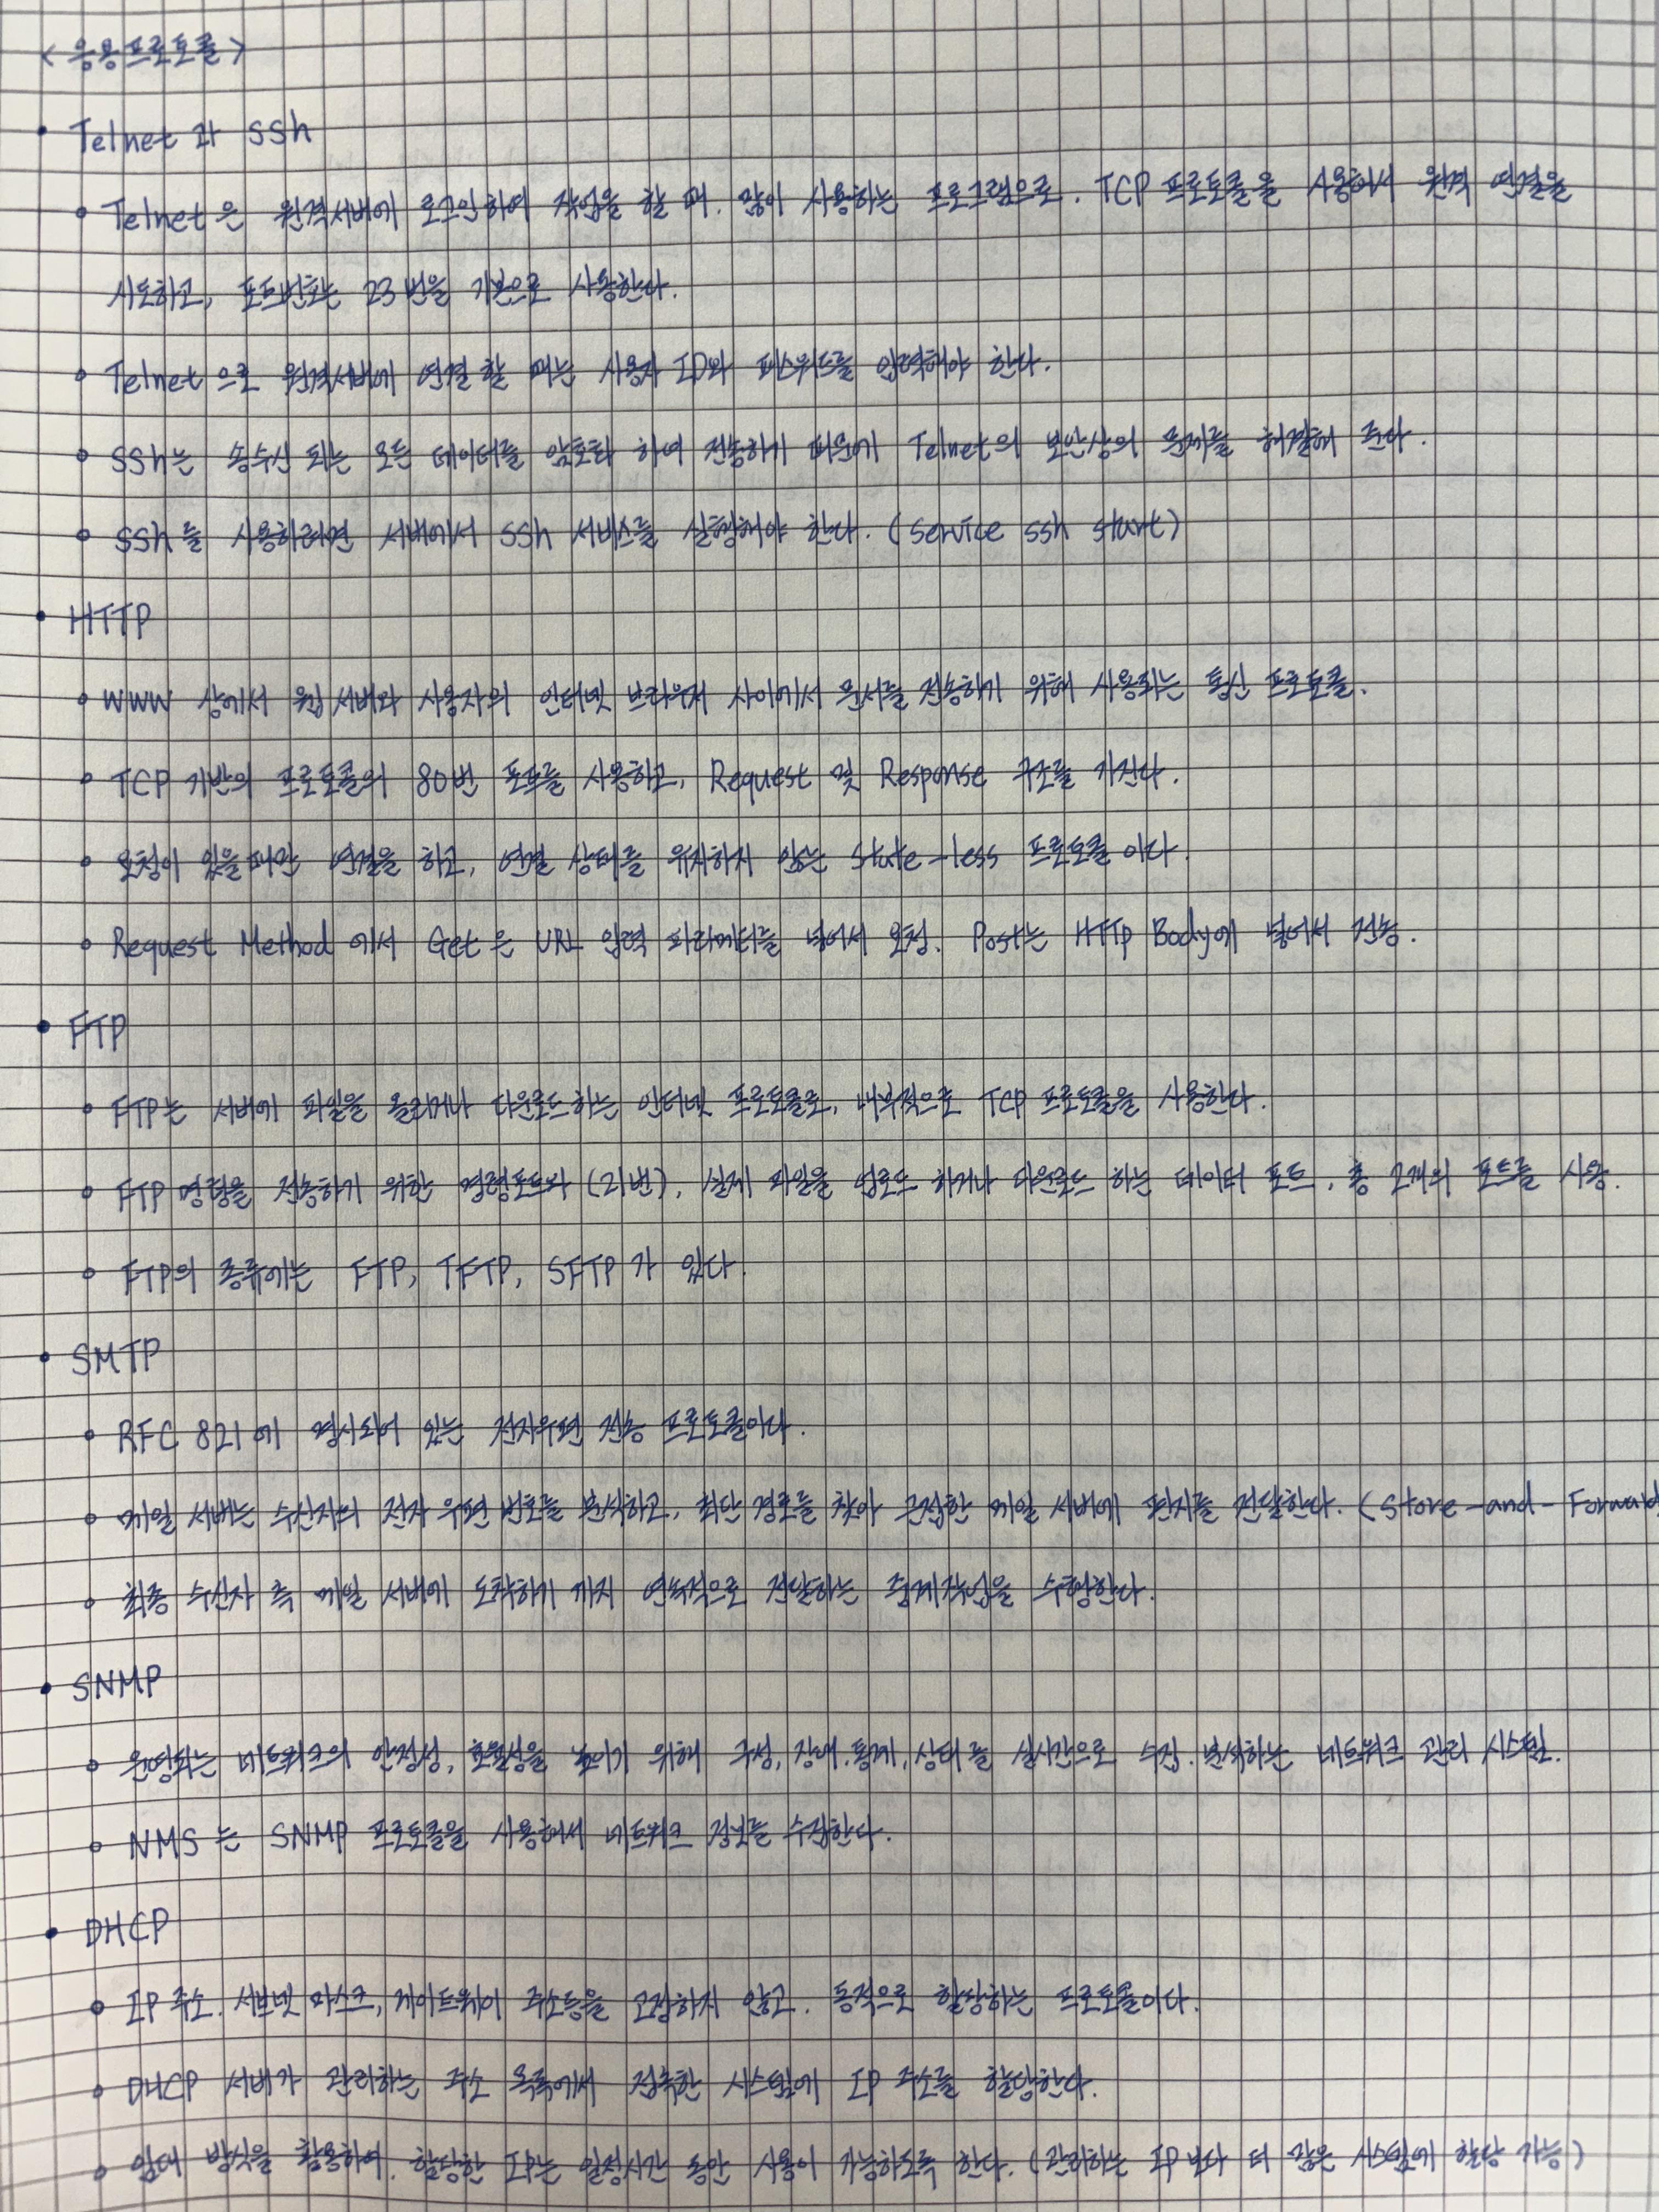 < 응용프로토콜 >
• Telnet 과 SSh
• Telnet 은 원격서버에 로그인하여 작업을 할 때. 많이 사용하는 프로그램으로. TCP 프로토콜을 사용해서 원격 연결을
시도하고, 포트번호는 23번을 기본으로 사용한다.
• Telnet 으로 원격서버에 연결 할 때는 사용자 ID와 패스워드를 입력해야 한다.
• SSh는 송수신 되는 모든 데이터를 암호화 하여 전송하기 때문에 Telnet의 보안상의 문제를 해결해 준다.
• SSh를 사용하려면 서버에서 SSh 서비스를 실행해야 한다. (service ssh start)
• HTTP
• WWW 상에서 웹 서버와 사용자의 인터넷 브라우저 사이에서 문서를 전송하기 위해 사용되는 통신 프로토콜.
• TCP 기반의 프로토콜의 80번 포트를 사용하고, Request 및 Response 구조를 가진다.
• 요청이 있을때만 연결을 하고, 연결 상태를 유지하지 않는 state-less 프로토콜 이다.
• Request Method 에서 Get 은 URL 입력 파라메터를 넣어서 요청. Post는 HTTP Body에 넣어서 전송.
• FTP
• FTP는 서버에 파일을 올리거나 다운로드하는 인터넷 프로토콜로, 내부적으로 TCP 프로토콜을 사용한다.
• FTP 명령을 전송하기 위한 명령포트와 (21번), 실제 파일을 업로드 하거나 다운로드 하는 데이터 포트, 총 2개의 포트를 사용.
• FTP의 종류에는 FTP, TFTP, SFTP 가 있다.
• SMTP
• RFC 821 에 명시되어 있는 전자우편 전송 프로토콜이다.
• 메일 서버는 수신자의 전자 우편 번호를 분석하고, 최단 경로를 찾아 근접한 메일 서버에 편지를 전달한다. (Store-and-Forward
• 최종 수신자 측 메일 서버에 도착하기 까지 연속적으로 전달하는 중계작업을 수행한다.
• SNMP
• 운영되는 네트워크의 안정성, 효율성을 높이기 위해 구성, 장애. 통계, 상태를 실시간으로 수집. 분석하는 네트워크 관리 시스템.
• NMS는 SNMP 프로토콜을 사용해서 네트워크 정보를 수집한다.
• DHCP
• IP 주소. 서브넷 마스크, 게이트웨이 주소등을 고정하지 않고. 동적으로 할당하는 프로토콜이다.
• DHCP 서버가 관리하는 주소 목록에서 접속한 시스템에 IP 주소를 할당한다.
• 임대 방식을 활용하여. 할당한 IP는 일정시간 동안 사용이 가능하도록 한다. (관리하는 IP 보다 더 많은 시스템에 할당 가능)